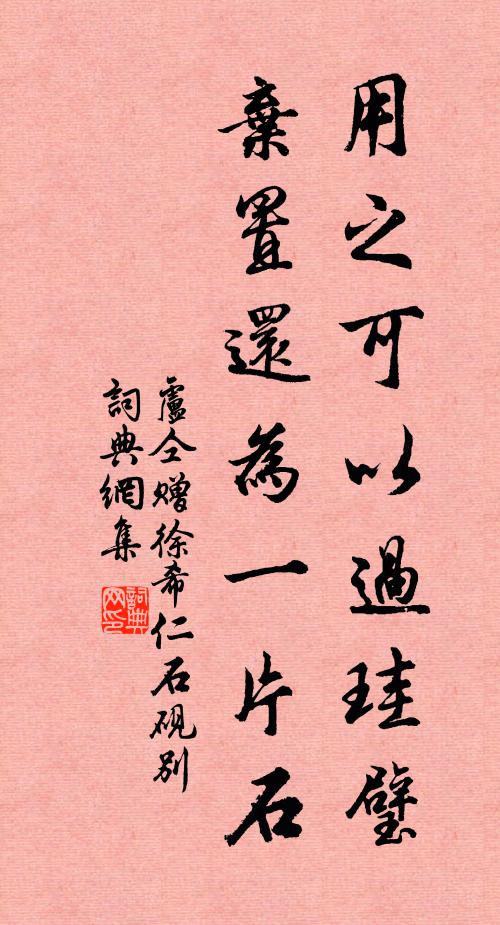 用之可以過珪璧
棄置還為一片石
盧仝贈徐希仁石硯別
詞典網集
詞典网印